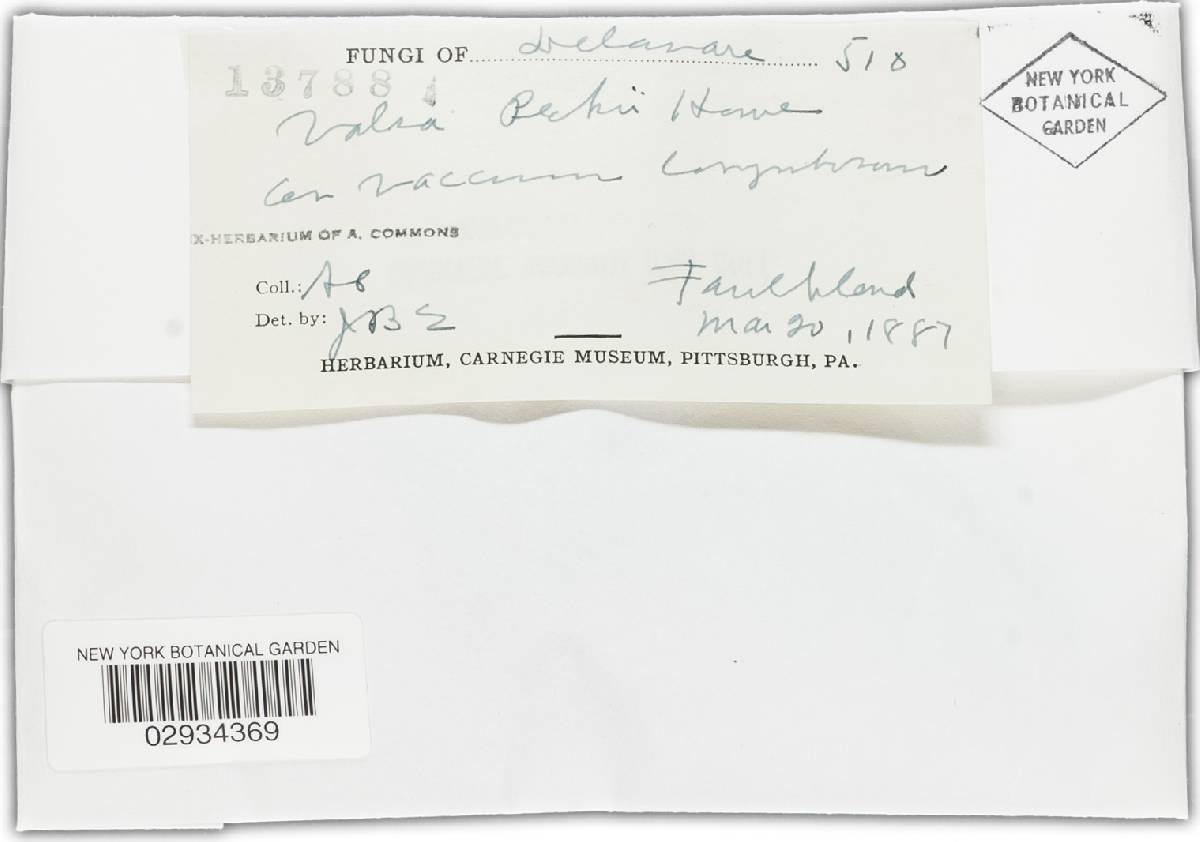 FUNGI OF Delaware 518
13788
Valsa Peckii Howe
on Vaccinium corymbosum
X-HERBARIUM OF A. COMMONS
Coll.: AC
Faulkland
Det. by: JBE
Mar 20, 1887
HERBARIUM, CARNEGIE MUSEUM, PITTSBURGH, PA.
NEW YORK
BOTANICAL
GARDEN
NEW YORK BOTANICAL GARDEN
02934369